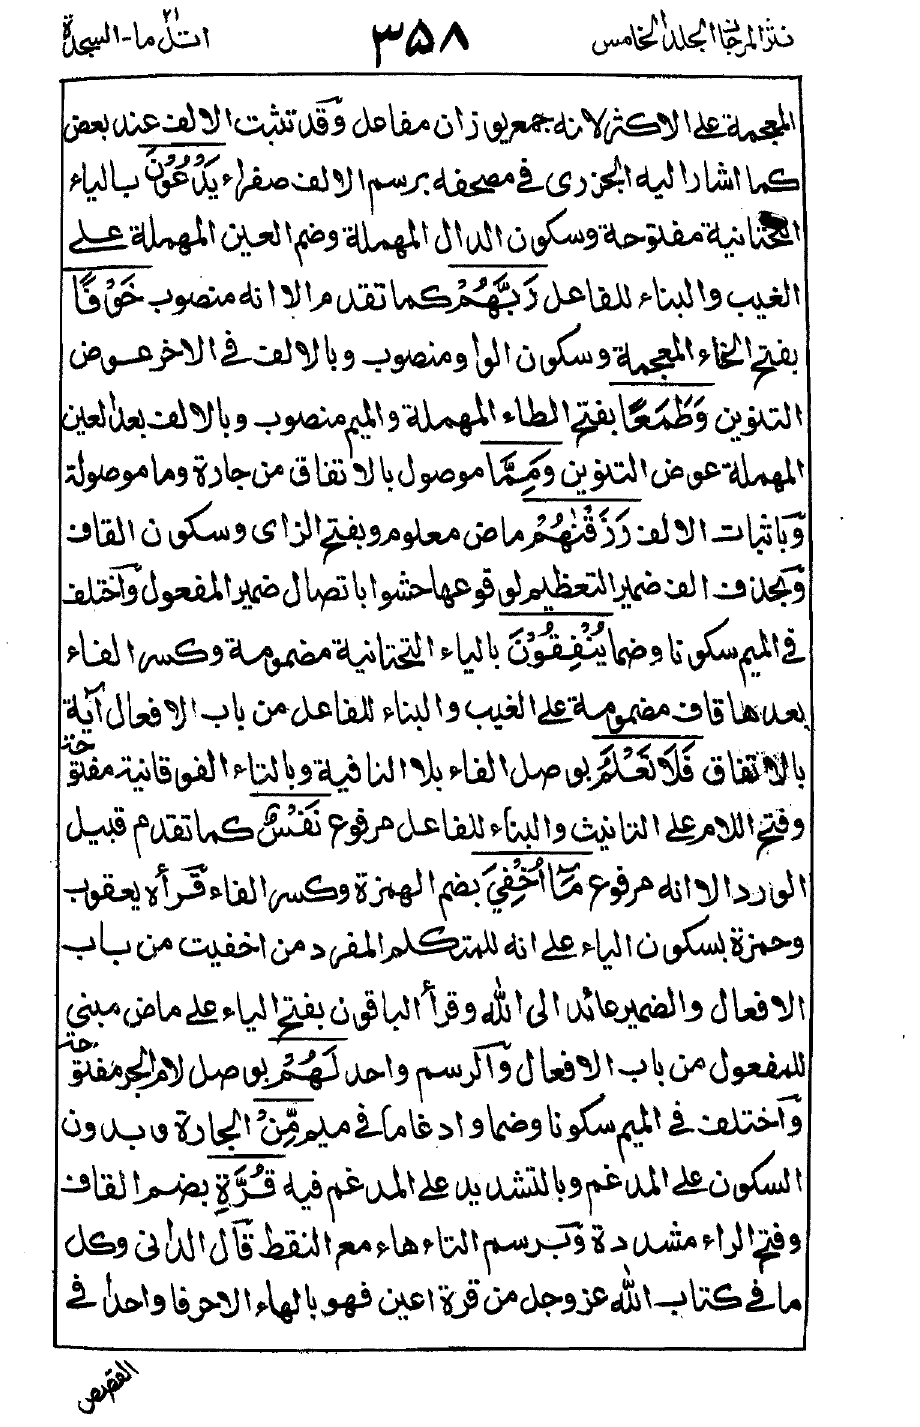 نثر المرجان المجلد الخامس ٣٥٨ اتل ما-السجدة ٢١
المعجمة على الاكثر لانه جمع يوزان مفاعل وقد تثبت الالف عند بعض
كما اشار اليه الجزرى فى مصحفه برسم الالف صفراء يَدْعُوْنَ بالياء
التحتانية مفتوحة وسكون الدال المهملة وضم العين المهملة على
الغيب والبناء للفاعل رَبَّهُمْ كما تقدم الا انه منصوب خَوْفًا
بفتح الخاء المعجمة وسكون الواو منصوب وبالالف فى الاخر عوض
التنوين وَطَمَعًا بفتح الطاء المهملة والميم منصوب وبالالف بعد العين
المهملة عوض التنوين وَمِمَّا موصول بالاتفاق من جارة وما موصولة
وباثبات الالف رَزَقْنٰهُمْ ماض معلوم وبفتح الزاى وسكون القاف
وبحذف الف ضمير التعظيم لوقوعها حشوا باتصال ضمير المفعول واختلف
فى الميم سكونا وضما يُنْفِقُوْنَ بالياء التحتانية مضمومة وكسر الفاء
بعدها قاف مضمومة على الغيب والبناء للفاعل من باب الافعال آية
بالاتفاق فَلَا تَعْلَمُ بوصل الفاء بلا النافية وبالتاء الفوقانية مفتوحة
وفتح اللام على التانيث والبناء للفاعل مرفوع نَفْسٌ كما تقدم قبيل
الورد الا انه مرفوع مَّآ اُخْفِيَ بضم الهمزة وكسر الفاء قرأه يعقوب
وحمزة بسكون الياء على انه للمتكلم المفرد من اخفيت من باب
الافعال والضمير عائد الى الله وقرأ الباقون بفتح الياء على ماض مبنى
للمفعول من باب الافعال والرسم واحد لَهُمْ بوصل لام الجر مفتوحة
واختلف فى الميم سكونا وضما وادغاما فى ميم مِّنْ الجارة وبدون
السكون على المدغم وبالتشديد على المدغم فيه قُرَّةِ بضم القاف
وفتح الراء مشددة وبرسم التاء هاء مع النقط قال الدانى وكل
ما فى كتاب الله عز وجل من قرة اعين فهو بالهاء الا حرفا واحدا فى
القصص